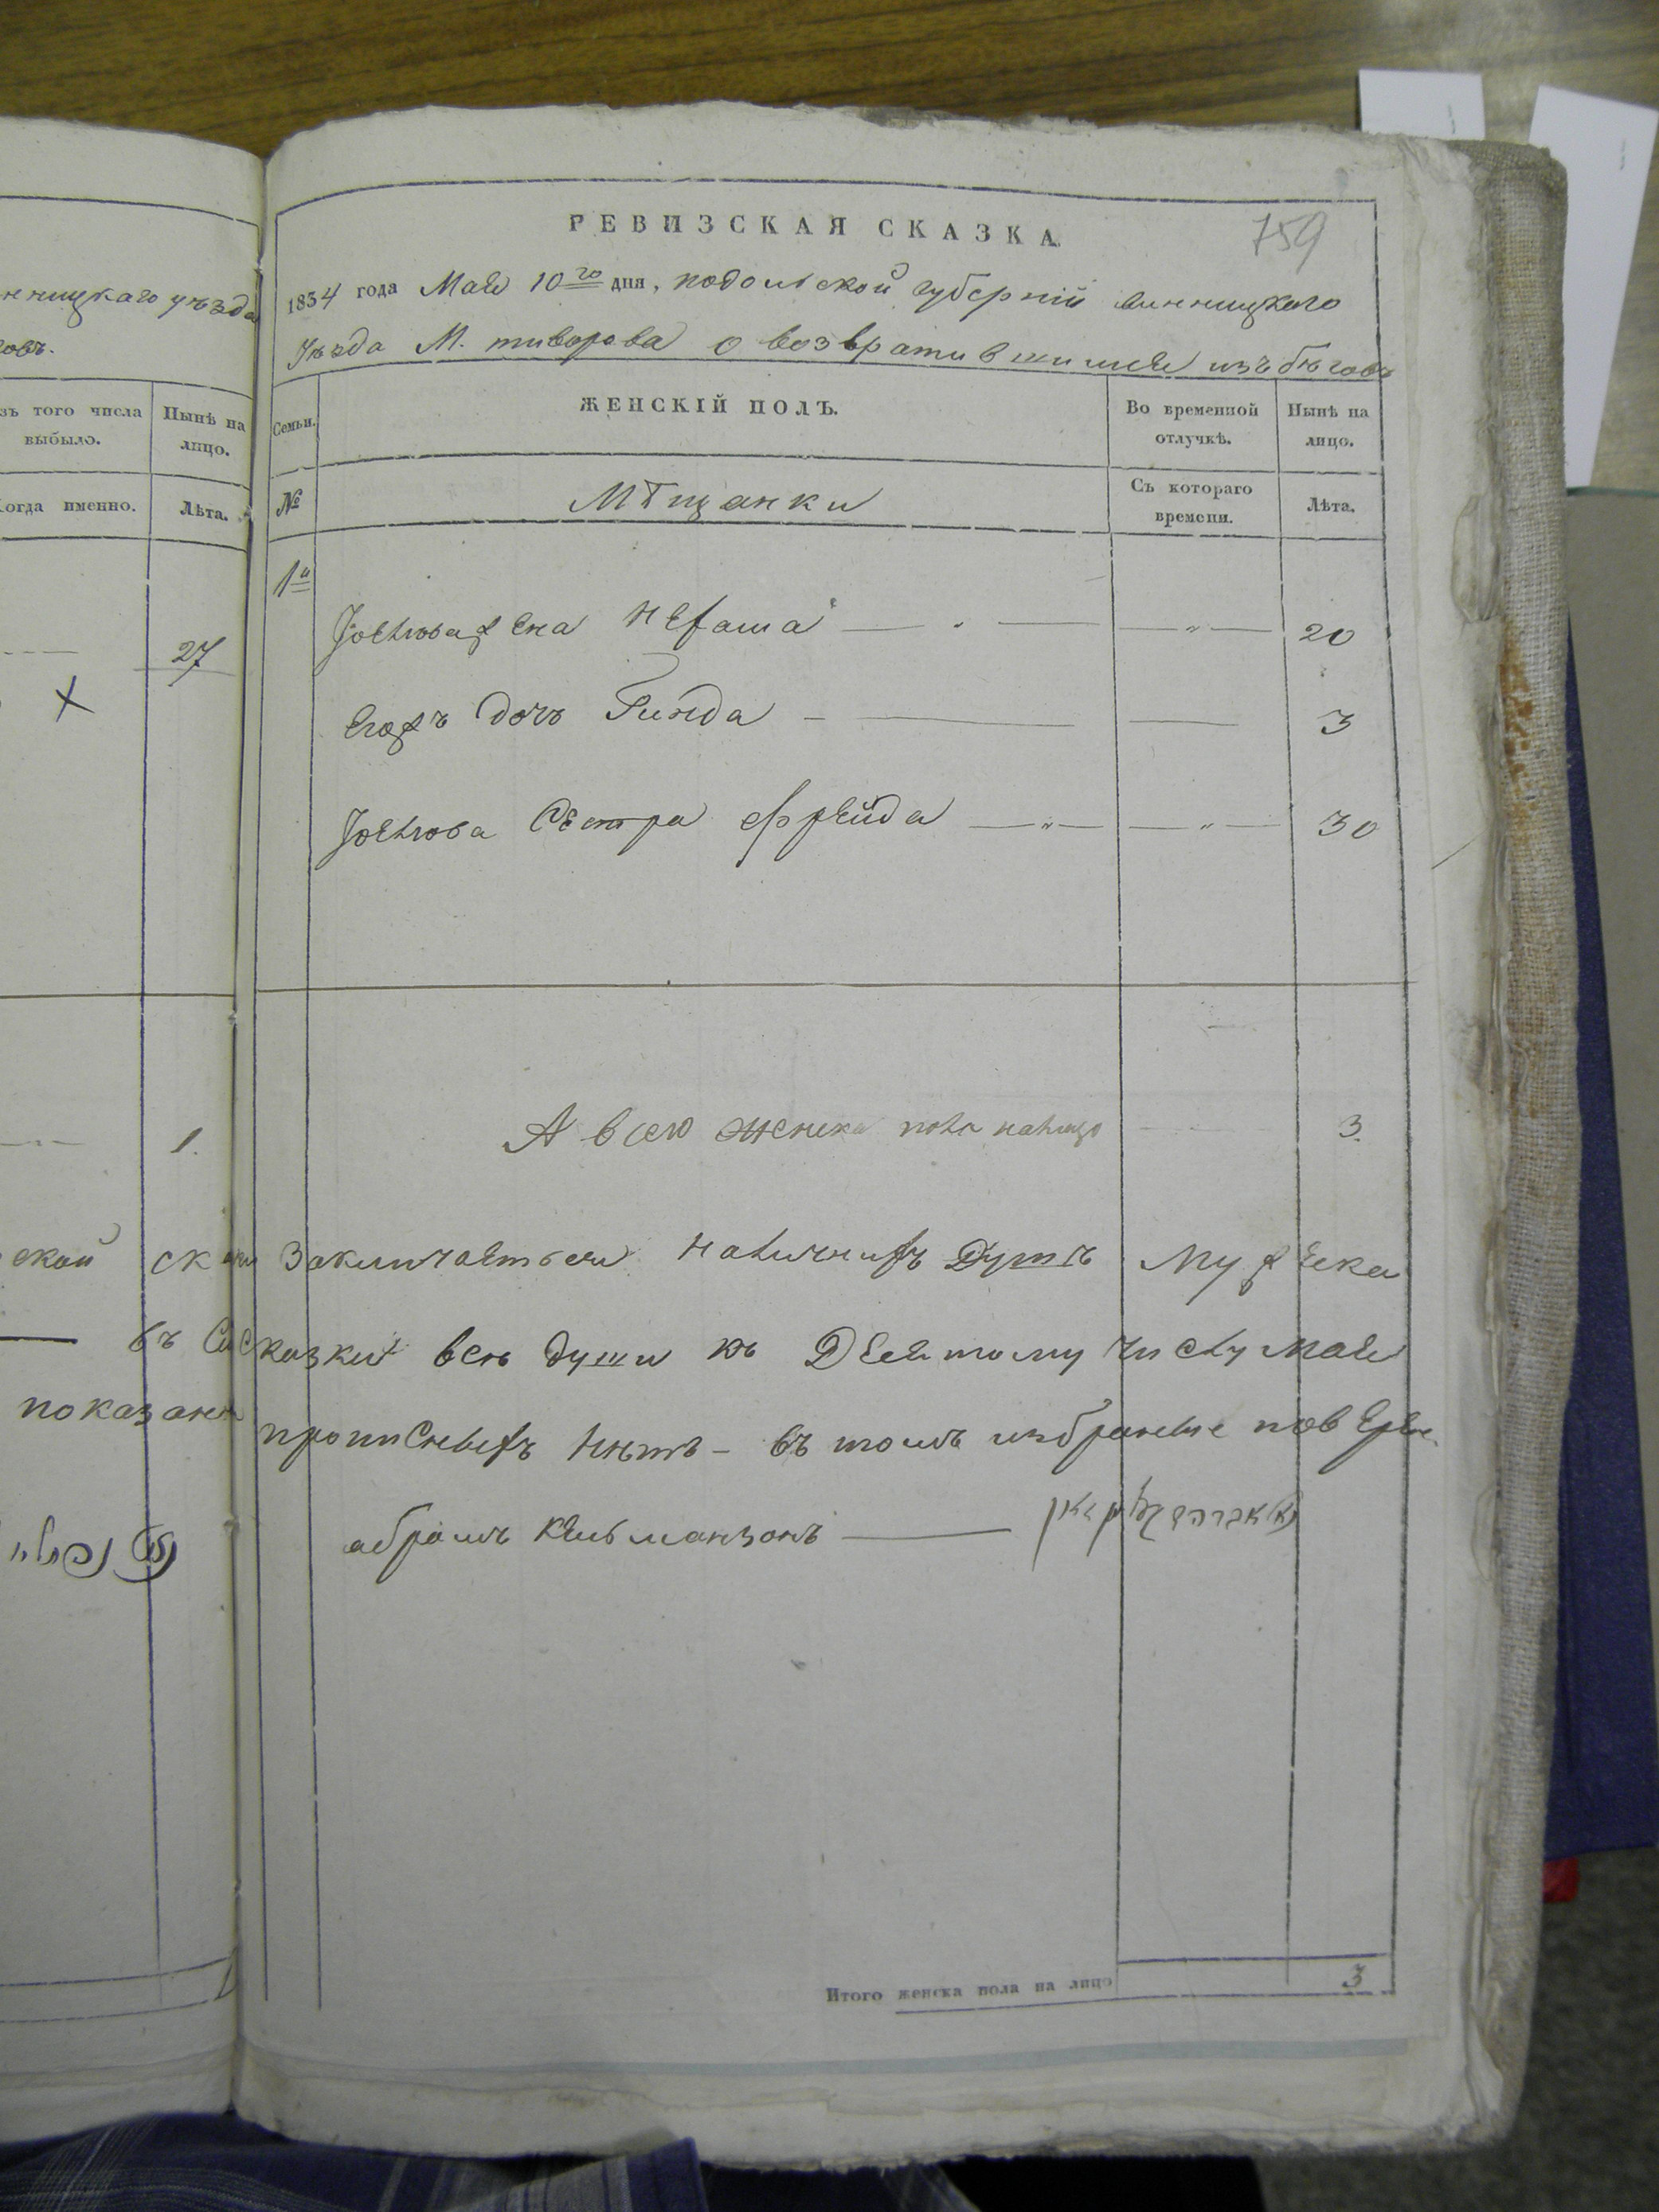 нницкаго уѣзда
овъ.
зъ того числа выбыло.
Нынѣ на лицо.
Когда именно.
Лѣта.
27
1.
ской
въ
показан
1
РЕВИЗСКАЯ СКАЗКА.
759
1854 года Мая 10го дня, подольской губерніи винницкого
уѣзда М. тиворова о возвратившимся изъ бѣговъ
Семьи.
ЖЕНСКІЙ ПОЛЪ.
Во временной отлучкѣ.
Нынѣ на лицо.
№
Мѣщанки
Съ котораго времени.
Лѣта.
1й
жена 20
Егожъ дочь Гинда 3
Сестра Фрейда 30
А всего женска пола налицо 3.
Заключается наличнихъ Душъ Мужеска
сказки всѣ души къ Девятому числу мая
прописныхъ нѣтъ – въ томъ избраные повѣрен.
абрамъ Кельманзонъ
Итого женска пола на лицо 3